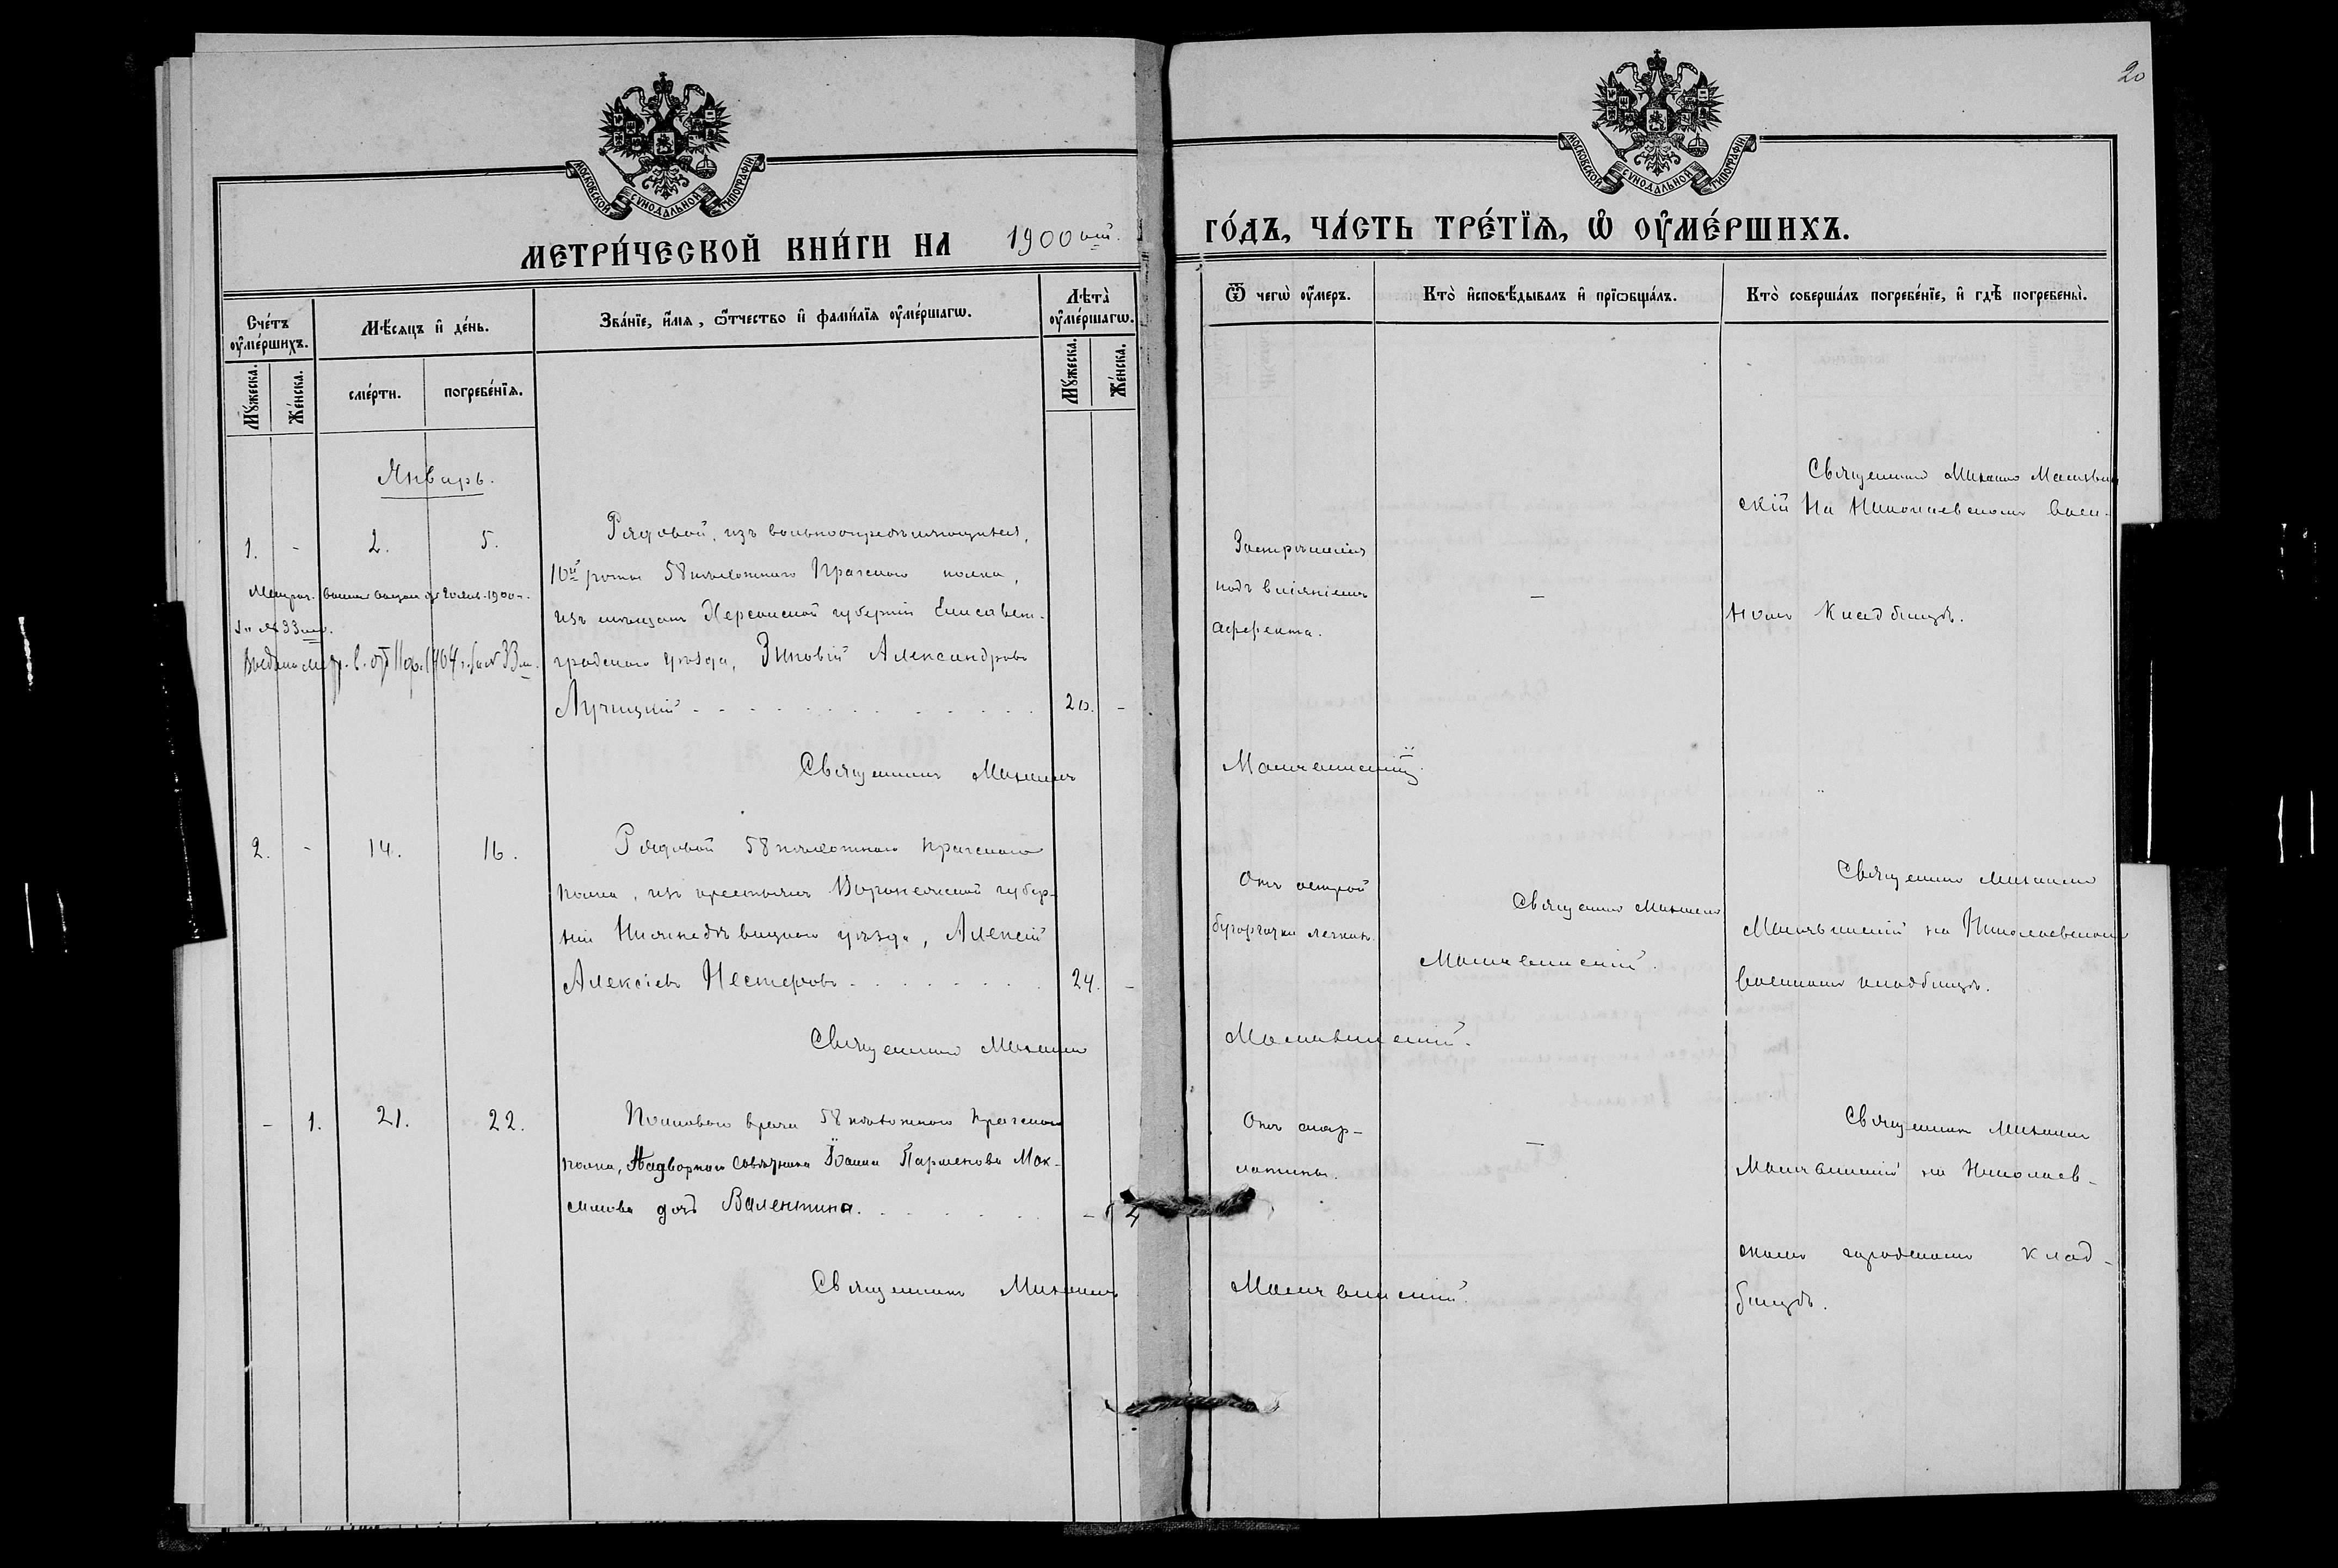 20
МОСКОВСКОЙ СѴНОДАЛЬНОЙ ТИПОГРАФІИ
МОСКОВСКОЙ СѴНОДАЛЬНОЙ ТИПОГРАФІИ
МЕТРИ́ЧЕСКОЙ КНИ́ГИ НА 1900 ый. ГО́ДЪ, ЧА́СТЬ ТРЕ́ТЇѦ, Ѡ҆ ОУ҆МЕ́РШИХЪ.
Сче́тъ оу҆ме́ршихъ.
Мꙋ́жеска.
Же́нска.
Мѣ́сѧцъ и҆ де́нь.
сме́рти.
погребе́нїѧ.
Зва́нїе, и҆́мѧ, ѻ҆́тчество и҆ фами́лїѧ оу҆ме́ршагѡ.
Лѣта̀ оу҆ме́ршагѡ.
Мꙋ́жеска.
Же́нска.
Ѿ чегѡ̀ оу҆́меръ.
Кто̀ и҆сповѣ́дывалъ и҆ прїѡбща́лъ.
Кто̀ соверша́лъ погребе́нїе, и҆ гдѣ̀ погребены̀.
Январь.
1. - 2. 5.
Рядовой, изъ вольноопредѣляющихся,
10й роты 58 пѣхотнаго Прагскаго полка,
изъ мѣщанъ Херсонской губерніи Елисавет-
градскаго уѣзда, Зиновій Александровъ
Лучицкій 20. -
Застрѣлился
подъ вліяніемъ
аффекта.
-
Священникъ Михаилъ
скій На Николаевскомъ Воен-
номъ Кладбищѣ.
Священникъ Михаилъ
2. - 14. 16.
Рядовой 58 пѣхотнаго Прагскаго
полка, изъ крестьянъ Воронежской губер-
ніи Нижнедѣвицкаго уѣзда, Алексій
Алексіевъ Нестеровъ 24. -
Отъ острой
бугорчатки легкихъ.
Священникъ Михаилъ
Священникъ Михаилъ
на Николаевскомъ
военномъ кладбищѣ.
Священникъ Михаилъ
- 1. 21. 22.
Полковаго врача 58 пѣхотнаго Прагскаго
полка, Надворнаго Совѣтника Іоанна Парменова Мак-
симова дочь Валентина. - 4
Отъ скар-
латины.
-
Священникъ Михаилъ
на Николаев-
скомъ городскомъ клад-
бищѣ.
Священникъ Михаилъ